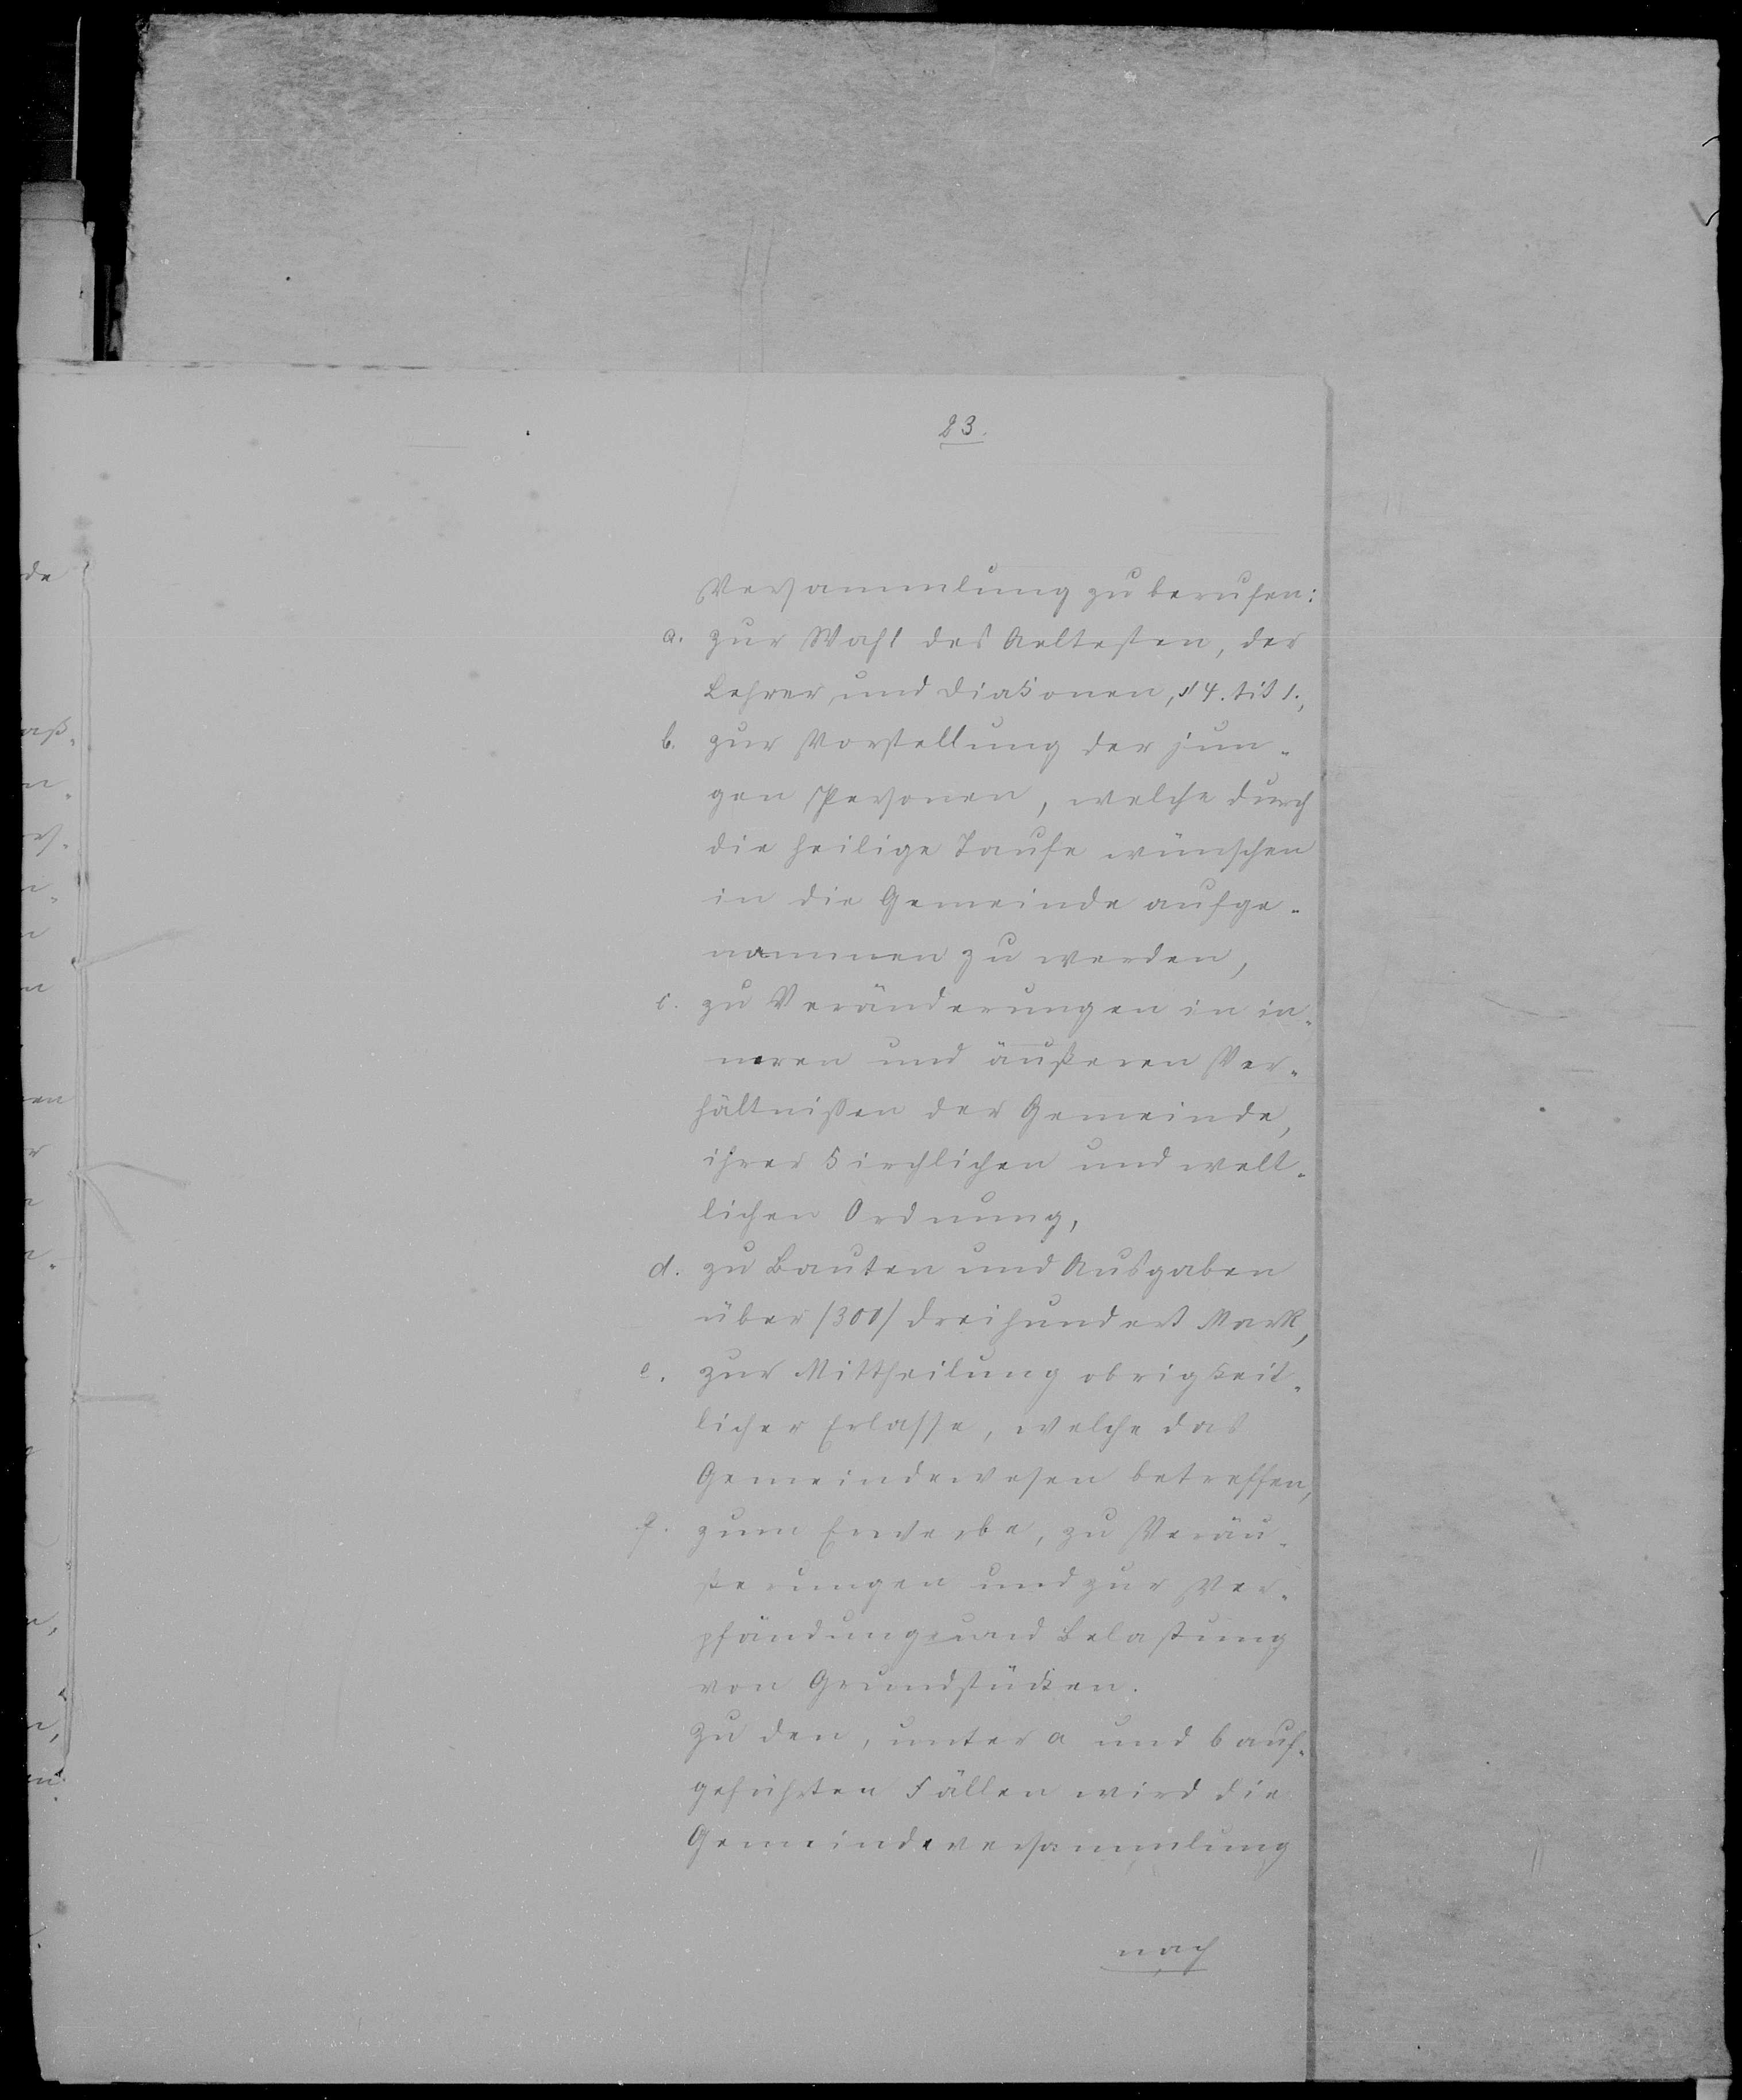 23.
Versammlung zu berufen:
a. zur Wahl des Aeltesten, der
Lehrer und Diakonen, § 4. tit 1.,
b. zur Vorstellung der jun-
gen Personen, welche durch
die heilige Taufe wünschen
in die Gemeinde aufge-
nommen zu werden,
c. zu Veränderungen in in-
neren und äußeren Ver-
hältnissen der Gemeinde,
ihrer kirchlichen und welt-
lichen Ordnung,
d. zu Bauten und Ausgaben
über /300/ dreihundert Mark,
e. zur Mittheilung obrigkeit-
licher Erlasse, welche das
Gemeindewesen betreffen,
f. zum Erwerbe, zu Veräu-
ßerungen und zur Ver-
pfändung und Belastung
von Grundstücken.
Zu den, unter a und b auf-
geführten Fällen wird die
Gemeindeversammlung
nach